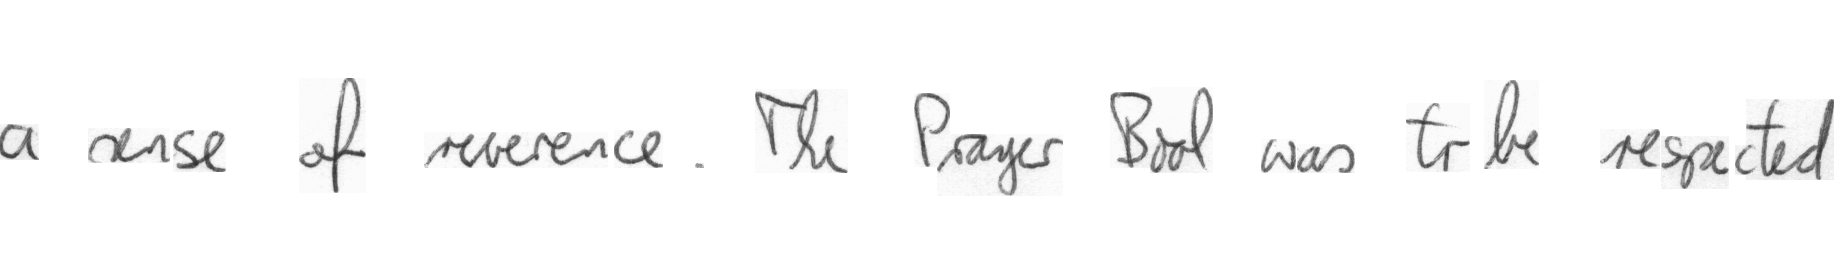 a sense of reverence. The Prayer Book was to be respected